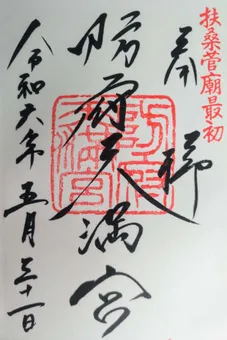 扶桑菅廟最初
奉拝
防府天満宮
令和六年五月三十一日